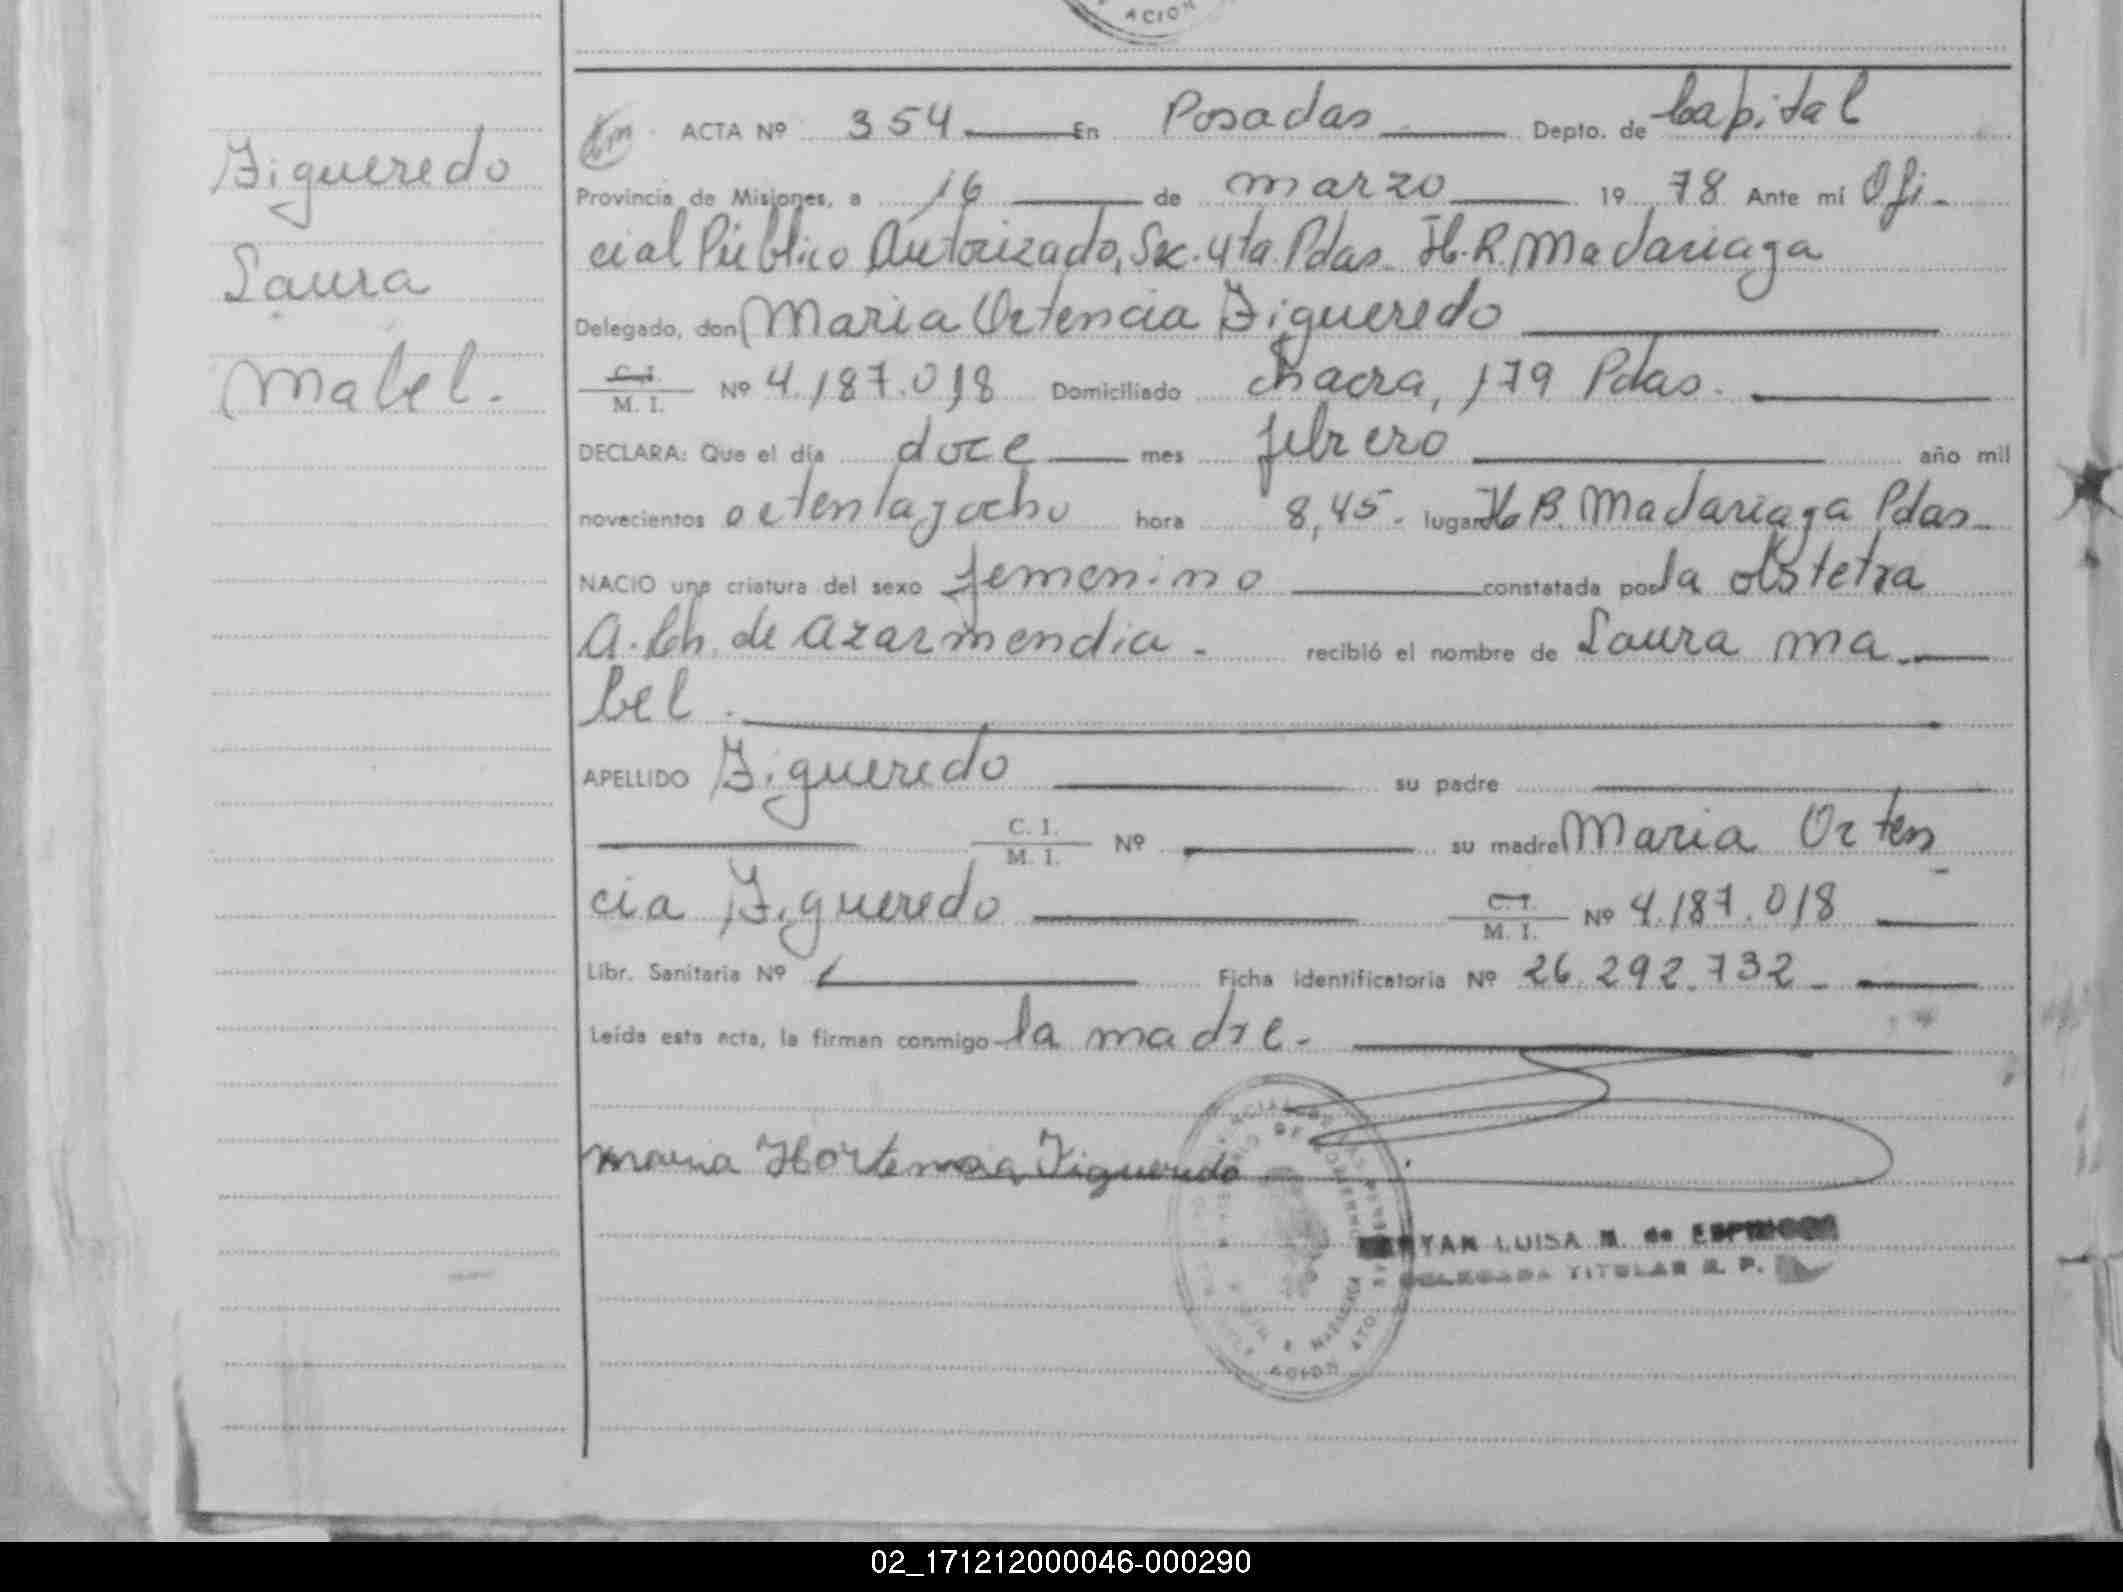 ACION
ACTA Nº 354 En Posadas Depto. de Capital
Figueredo
Provincia de Misiones, a 16 de marzo 19 78 Ante mi Ofi-
cial Público Autorizado, Sec. 4ta. Pdas. H. R. Madariaga
Laura
Delegado, don Maria Ortencia Figueredo
Mabel.
C. I.
M. I. Nº 4.187.018 Domiciliado chacra, 179 Pdas.
DECLARA: Que el día doce mes febrero año mil
novecientos octentayocho hora 8,45. lugar H. R. Madariaga Pdas.
NACIO una criatura del sexo femenino constatada por la obstetra
A. Ch. de Azarmendia. recibió el nombre de Laura Ma
bel.
APELLIDO Figueredo su padre
C. I.
M. I. Nº su madre Maria Orten
cia Figueredo C. I.
M. I. Nº 4.187.018
Libr. Sanitaria Nº Ficha identificatoria Nº 26.292.732
Leída esta acta, la firman conmigo la madre.
Maria Hortencia Figueredo
YAN LUISA M. de ESPINOSA
DELEGADA TITULAR R. P.
02_171212000046-000290